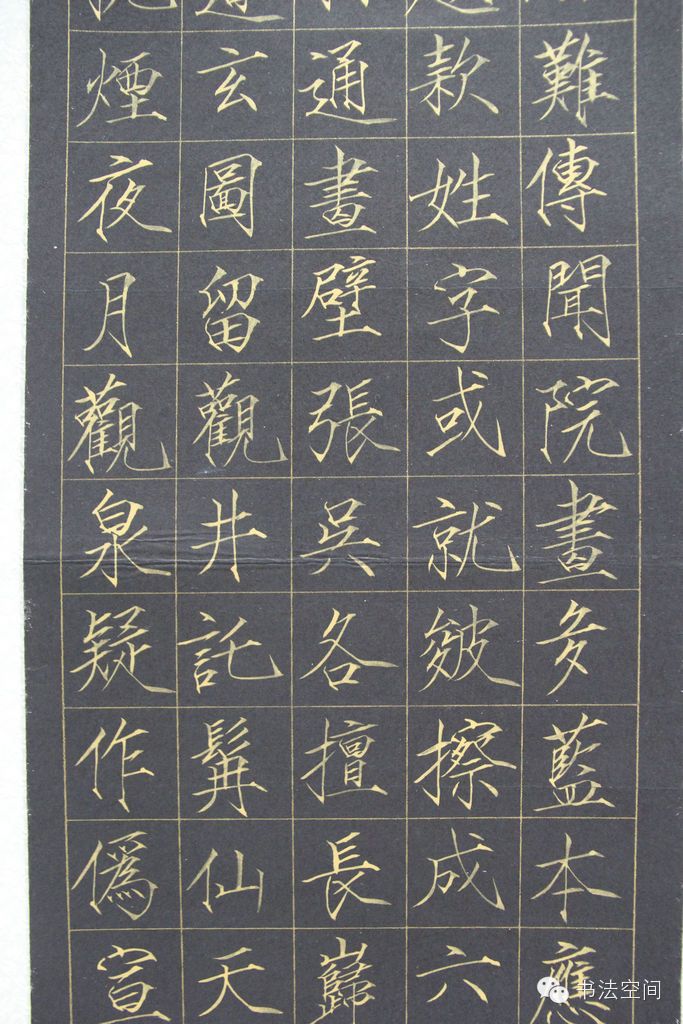 難傳聞院畫多藍本應
款姓字或就皴擦成六
通畫壁張吳各擅長巋
玄圖留觀井託髯仙天
煙夜月觀泉疑作偽宣
书法空间